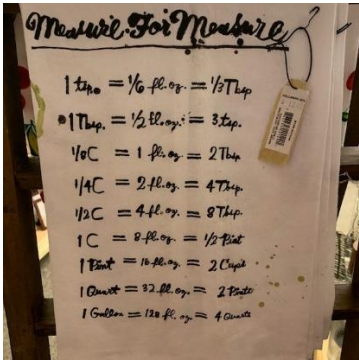 Measure For Measure
1 tsp. = 1/6 fl.oz. = 1/3 Tbsp
1 Tbsp. = 1/2 fl.oz. = 3 tsp.
1/8C = 1 fl.oz = 2 Tbsp
1/4C = 2 fl.oz. = 4 Tbsp.
1/2C = 4 fl.oz. = 8 Tbsp.
1C = 8 fl.oz. = 1/2 Pint
1 Pint = 16 fl.oz. = 2 Cups
1 Quart = 32 fl.oz. = 2 Pints
1 Gallon = 128 fl.oz. = 4 Quarts